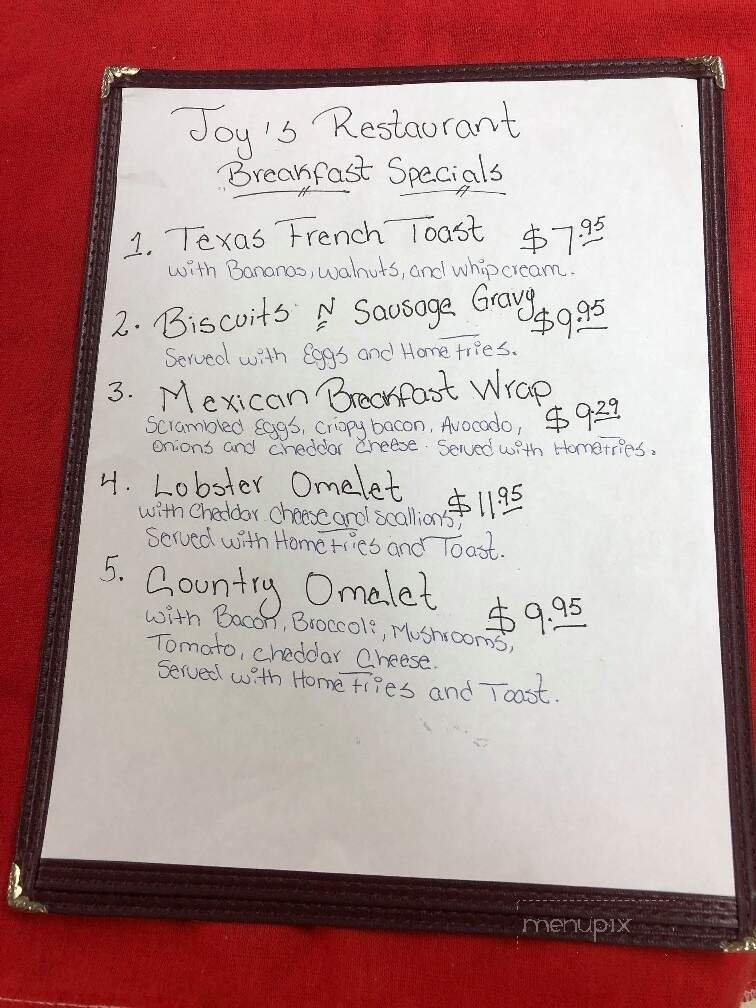 Joy's Restaurant
Breakfast Specials
1. Texas French Toast $7.95
with Bananas, walnuts, and whipcream.
2. Biscuits N Sausage Gravy $9.95
Served with Eggs and Home Fries.
3. Mexican Breakfast Wrap
Scrambled Eggs, Crispy bacon, Avocado, $9.29
onions and cheddar cheese. Served with Homefries.
4. Lobster Omelet $11.95
with Cheddar Cheese and scallions,
Served with Home Fries and Toast.
5. Country Omelet $9.95
with Bacon, Broccoli, Mushrooms,
Tomato, Cheddar Cheese.
Served with Home Fries and Toast.
menupix